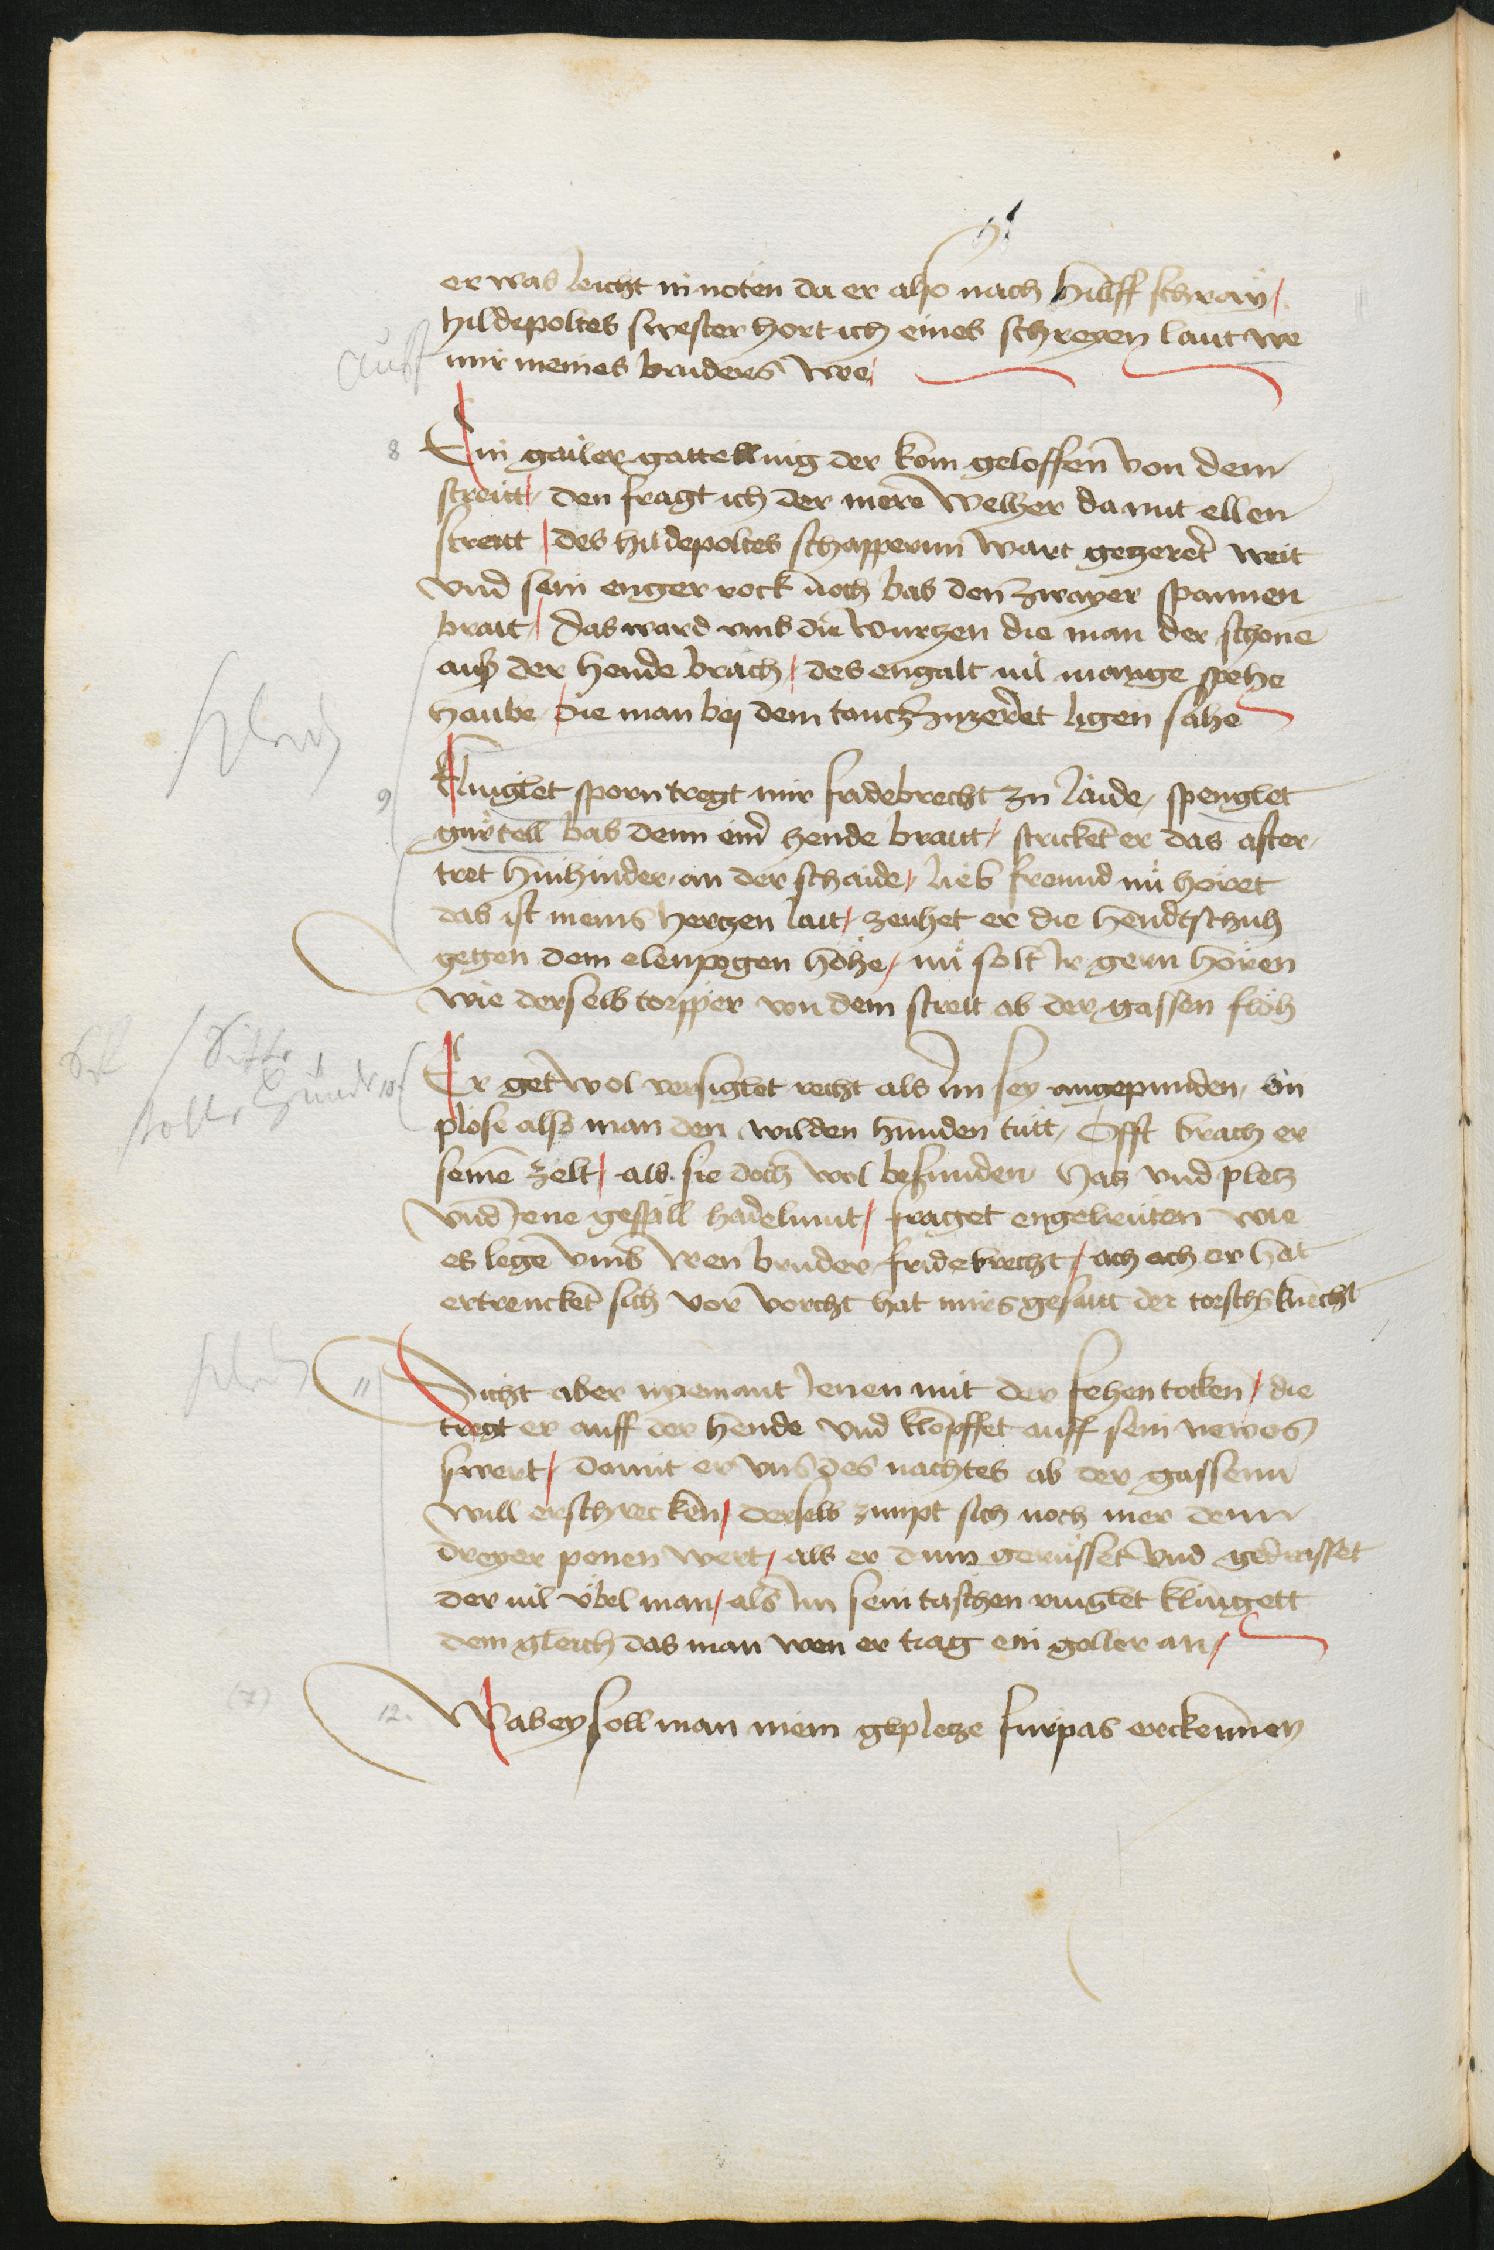 er was leicht in noten da er also nach hillff schray /
hildepoltes swester hort ich eines schreyen laut we
mir meines bruders we /
8 Ein gailer gattelling der kom geloffen von dem
streitt / den fragt ich der mere welher da mit ellen
streitt / des hildepoltes schapperun wart gezeret weit
vnd sein enger rock noch bas den zwayer spannen
brait / das ward vmb die wurzen die man der schone
auß der hende brach / des engalt vil manige spehe
haube / die man bej dem tancz zuzeret ligen sahe
9 Klinglet sporn tregt mir fridebrecht zu laide / spenglet
gurtell bas denn einer hende brait / stricket er das after
tret hin hinder an der schaide / lieb freund nu horet
das ist meins herzen lait / zeuhet er die hendtschuh
gegen dem elenpogen hohe / nu solt ir gern horen
wie derselb torpper von dem streit ab der gassen floh
10 Er get wol versiglet recht als im sey angepunden ein
plose also man den wilden hunden tutt / Offt brach er
seine zelt / als sie doch wol befunden hatz vnd pletz
vnd jene gessill hadelmut / fraget engelreuten wie
es lege vmb wen bruder fridebrecht / ach ach er hat
ertrencket sich vor vorcht hat mirs gesait der torsch knecht
11 Sicht aber nyemant jenen mit der sehen tocken / die
tregt er auff der hende vnd klopffet auff sein newes
swert / damit er vns des nachtes ab der gassenn
will erschrecken / derselb zimpt sich noch mer denn
dreyer ponen wert / als er dunz gerusset vnd gedrasset
der vil ubel man / als im sein taschen ringlet klingett
dem gleich das man wen er trag ein goller an /
(7) 12. Wabey soll man mein gepletze furpas erckennen